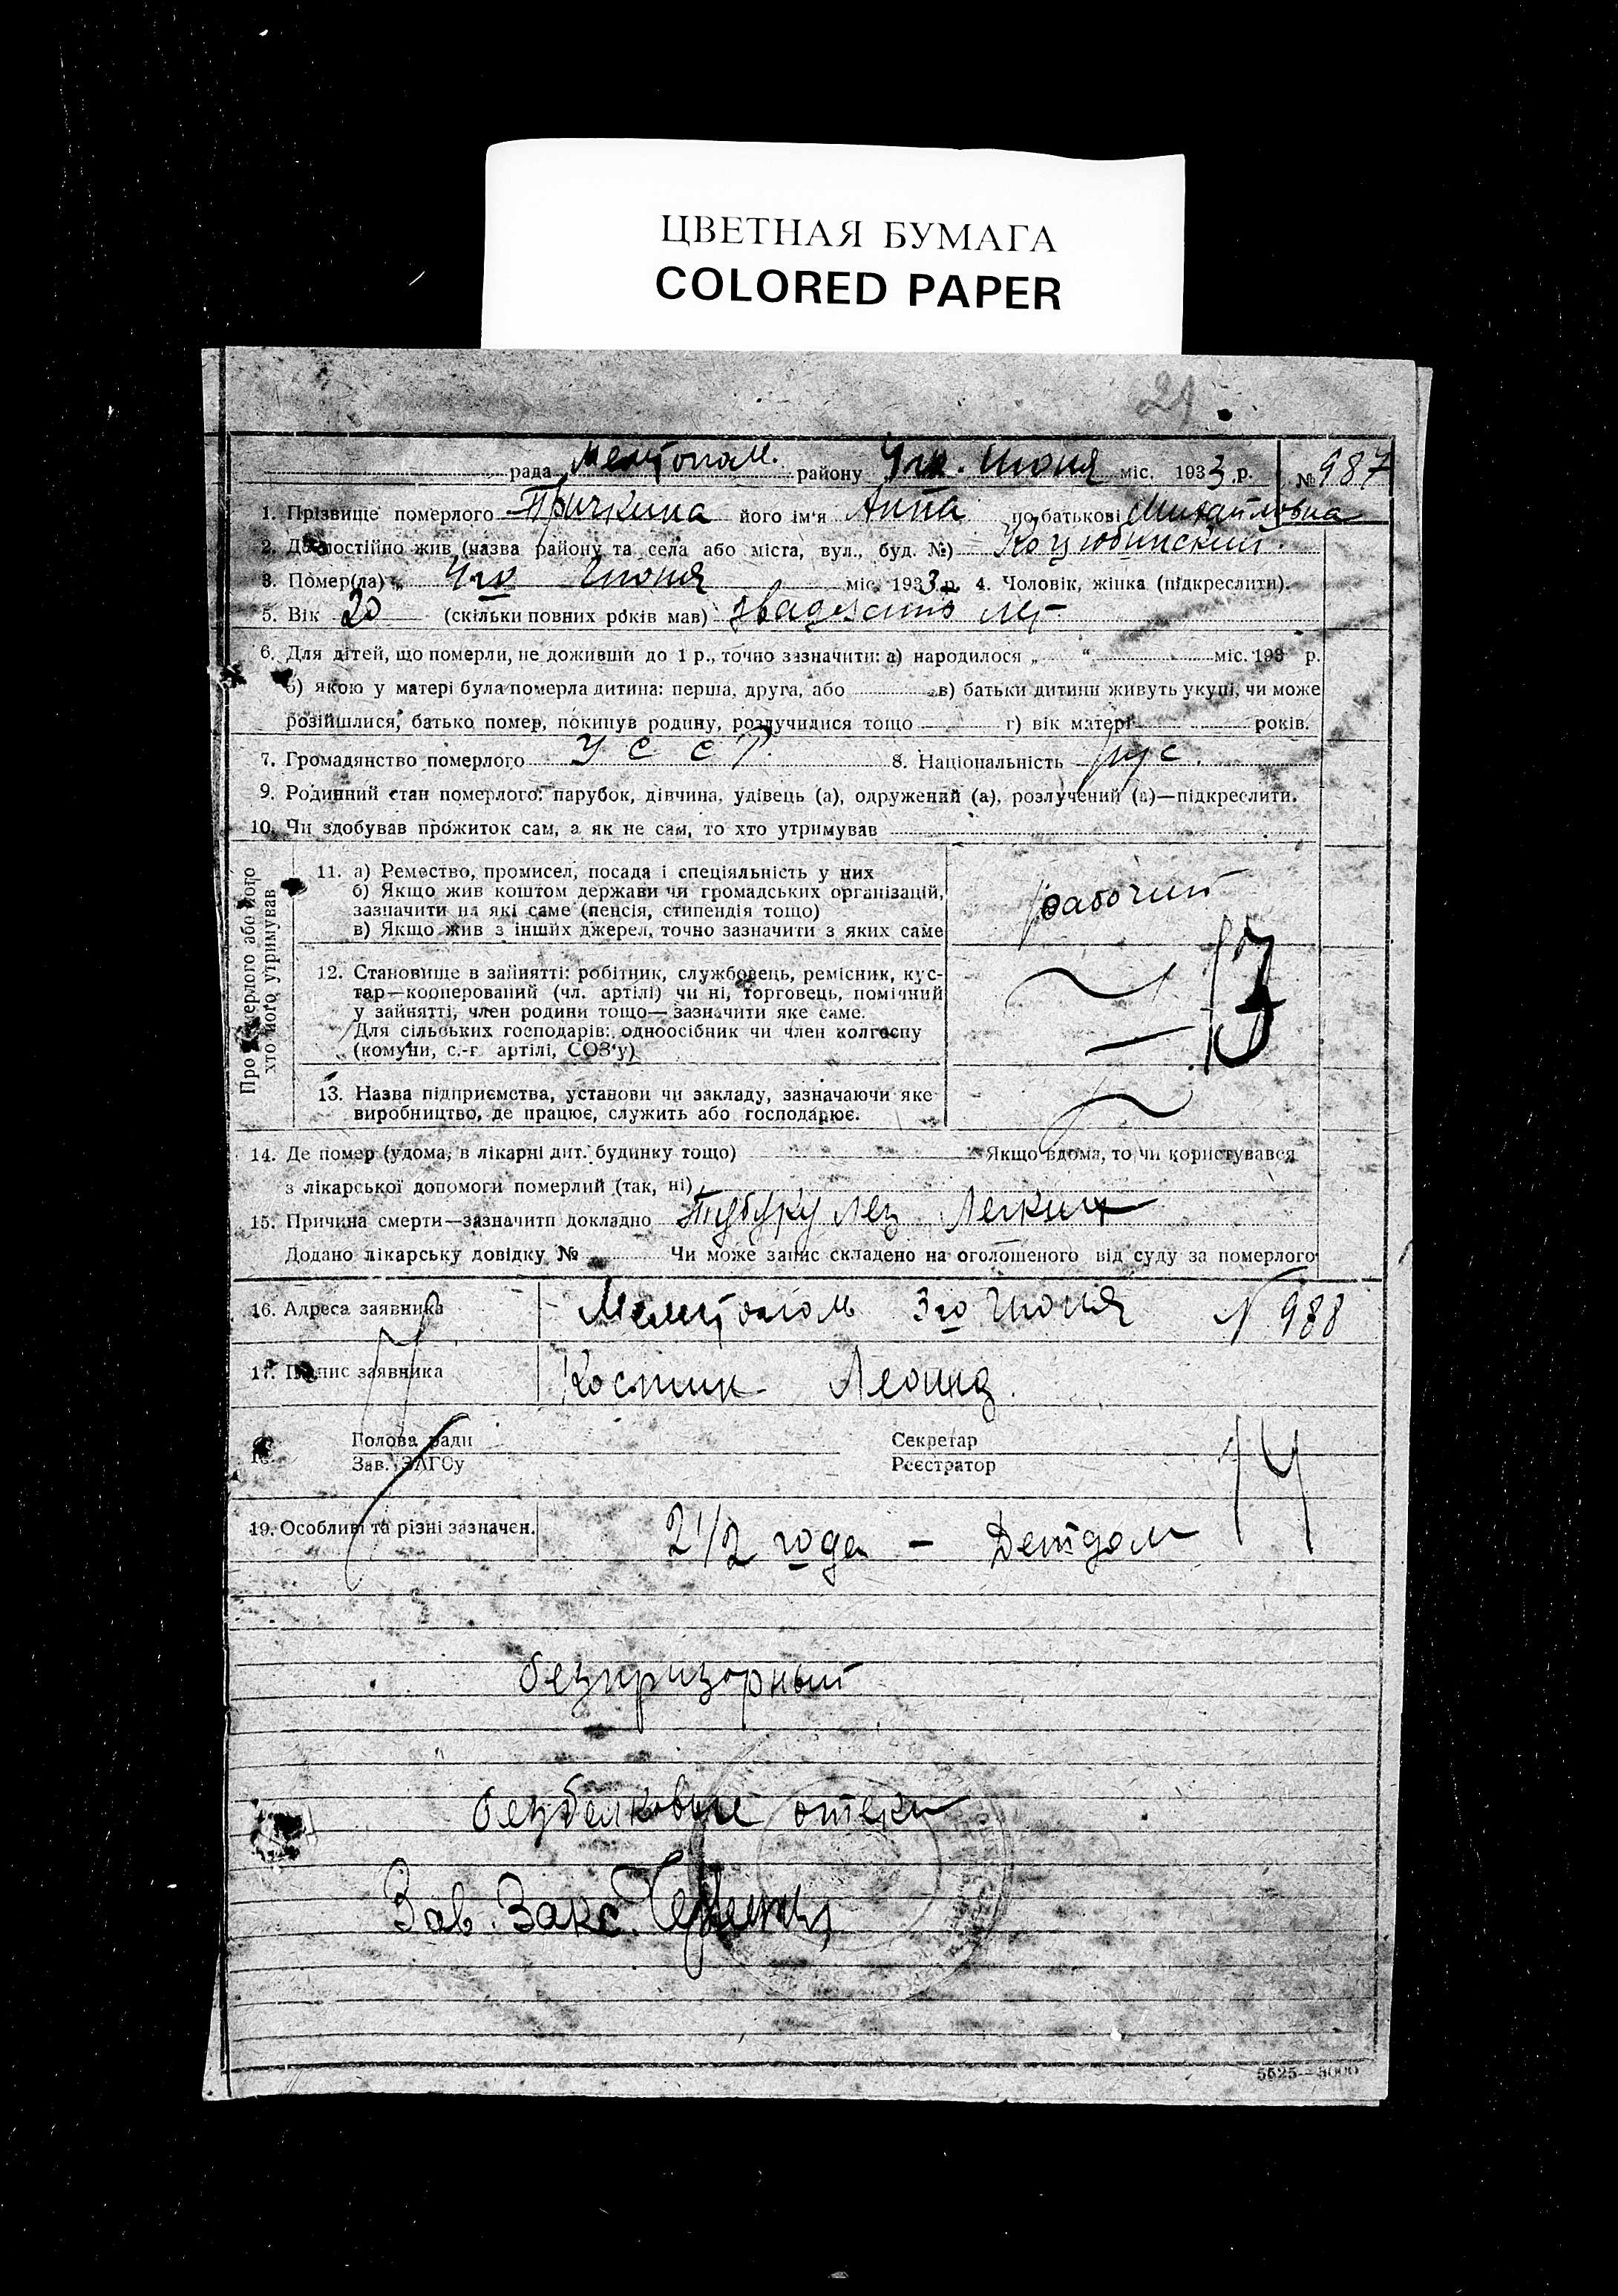 ЦВЕТНАЯ БУМАГА
COLORED PAPER
21
рада Мелітопол. району 4го. Июня міс. 1933 р. № 987
1. Прізвище померлого Причкина його ім'я Анна по батькові Михайловна
2. Де постійно жив (назва району та села або міста, вул., буд. №) Коцюбинский.
3. Помер(ла) „ 4го Июня міс. 1933 р. 4. Чоловік, жінка (підкреслити).
5. Вік 20 (скільки повних років мав) двадцать лет
6. Для дітей, що померли, не доживши до 1 р., точно зазначити: а) народилося „ “ міс. 193 р.
б) якою у матері була померла дитина: перша, друга, або в) батьки дитини живуть укупі, чи може
розійшлися, батько помер, покинув родину, розлучилися тощо г) вік матері років.
7. Громадянство померлого УССР. 8. Національність рус.
9. Родинний стан померлого: парубок, дівчина, удівець (а), одружений (а), розлучений (а)—підкреслити.
10. Чи здобував прожиток сам, а як не сам, то хто утримував
Про померлого або його
хто його утримував
11. а) Ремество, промисел, посада і спеціяльність у них
б) Якщо жив коштом держави чи громадських організацій,
зазначити на які саме (пенсія, стипендія тощо)
в) Якщо жив з інших джерел, точно зазначити з яких саме
рабочий
12. Становище в зайнятті: робітник, службовець, ремісник, кус-
тар—кооперований (чл. артілі) чи ні, торговець, помічний
у зайнятті, член родини тощо— зазначити яке саме.
Для сільських господарів: одноосібник чи член колгоспу
(комуни, с.-г артілі, СОЗ'у)
13. Назва підприємства, установи чи закладу, зазначаючи яке
виробництво, де працює, служить або господарює.
14. Де помер (удома, в лікарні дит. будинку тощо) Якщо вдома, то чи користувався
з лікарської допомоги померлий (так, ні)
15. Причина смерти—зазначити докладно Тубуркулез Легких
Додано лікарську довідку № Чи може запис складено на оголошеного від суду за померлого
16. Адреса заявника Мелитополь 3го Июня N 988
17. Підпис заявника Костин Леонид.
18. Голова ради Секретар
Зав. ЗАГСу Реєстратор
14
19. Особливі та різні зазначен. 2 1/2 года - Детдом
безпризорный
безбелковые отеки
Зав. Загс.
5525—3000